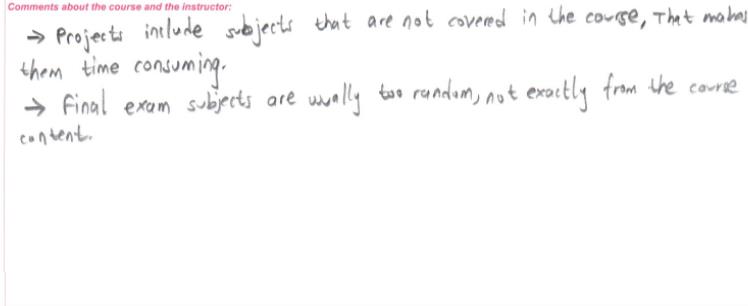 Comments about the course and the instructor:
→ Projects include subjects that are not covered in the course, That makes
them time consuming.
→ Final exam subjects are usually too random, not exactly from the course
content.